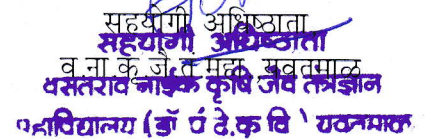 सहयोगी अधिष्ठाता
सहयोगी अधिष्ठाता
व.ना.कृ.जै.त.महा.,यवतमाळ
वसंतराव नाईक कृषि जैव तंत्रज्ञान
महाविद्यालय (डॉ पं दे.कृ वि ) यवतमाळ